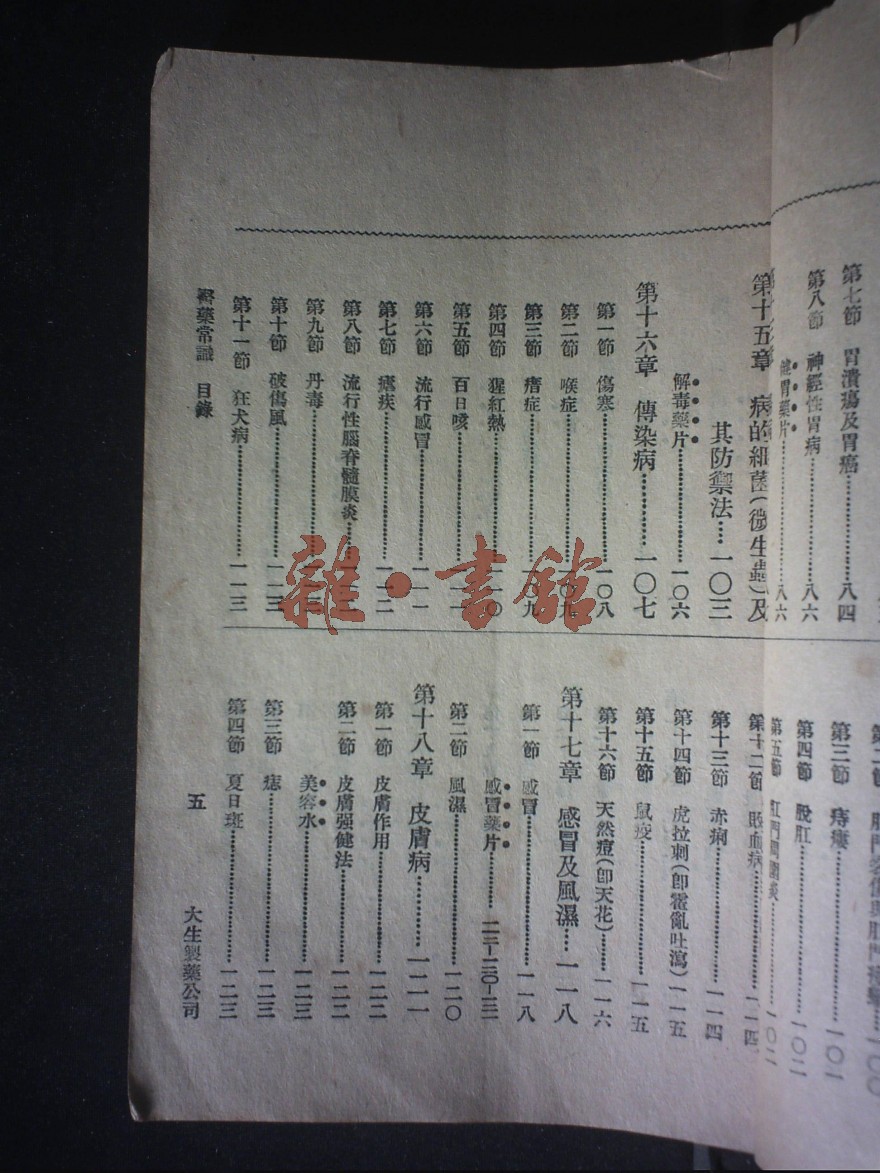 第七節　胃潰瘍及胃癌……八四
第八節　神經性胃病……八六
健胃藥片……八六
第十五章　病的細菌(微生蟲)及
其防禦法……一〇三
解毒藥片……一〇六
第十六章　傳染病……一〇七
第一節　傷寒……一〇八
第二節　喉症……一〇九
第三節　痦症……一〇九
第四節　猩紅熱……一一〇
第五節　百日咳……一一一
第六節　流行感冒……一一一
第七節　瘧疾……一一二
第八節　流行性腦脊髓膜炎……
第九節　丹毒……
第十節　破傷風……一一三
第十一節　狂犬病……一一三
第三節　痔瘻……一〇一
第四節　脫肛……一〇二
第五節　肛門周圍炎……一〇二
第十二節　敗血病……一一四
第十三節　赤痢……一一四
第十四節　虎拉刺(卽霍亂吐瀉)一一五
第十五節　鼠疫……一一五
第十六節　天然痘(卽天花)……一一六
第十七章　感冒及風濕……一一八
第一節　感冒……一一八
感冒藥片……
第二節　風濕……一二〇
第十八章　皮膚病……一二一
第一節　皮膚作用……一二二
第二節　皮膚强健法……一二二
美容水……一二三
第三節　痣……一二三
第四節　夏日斑……一二三
醫藥常識　目錄
五
大生製藥公司
雜·書館